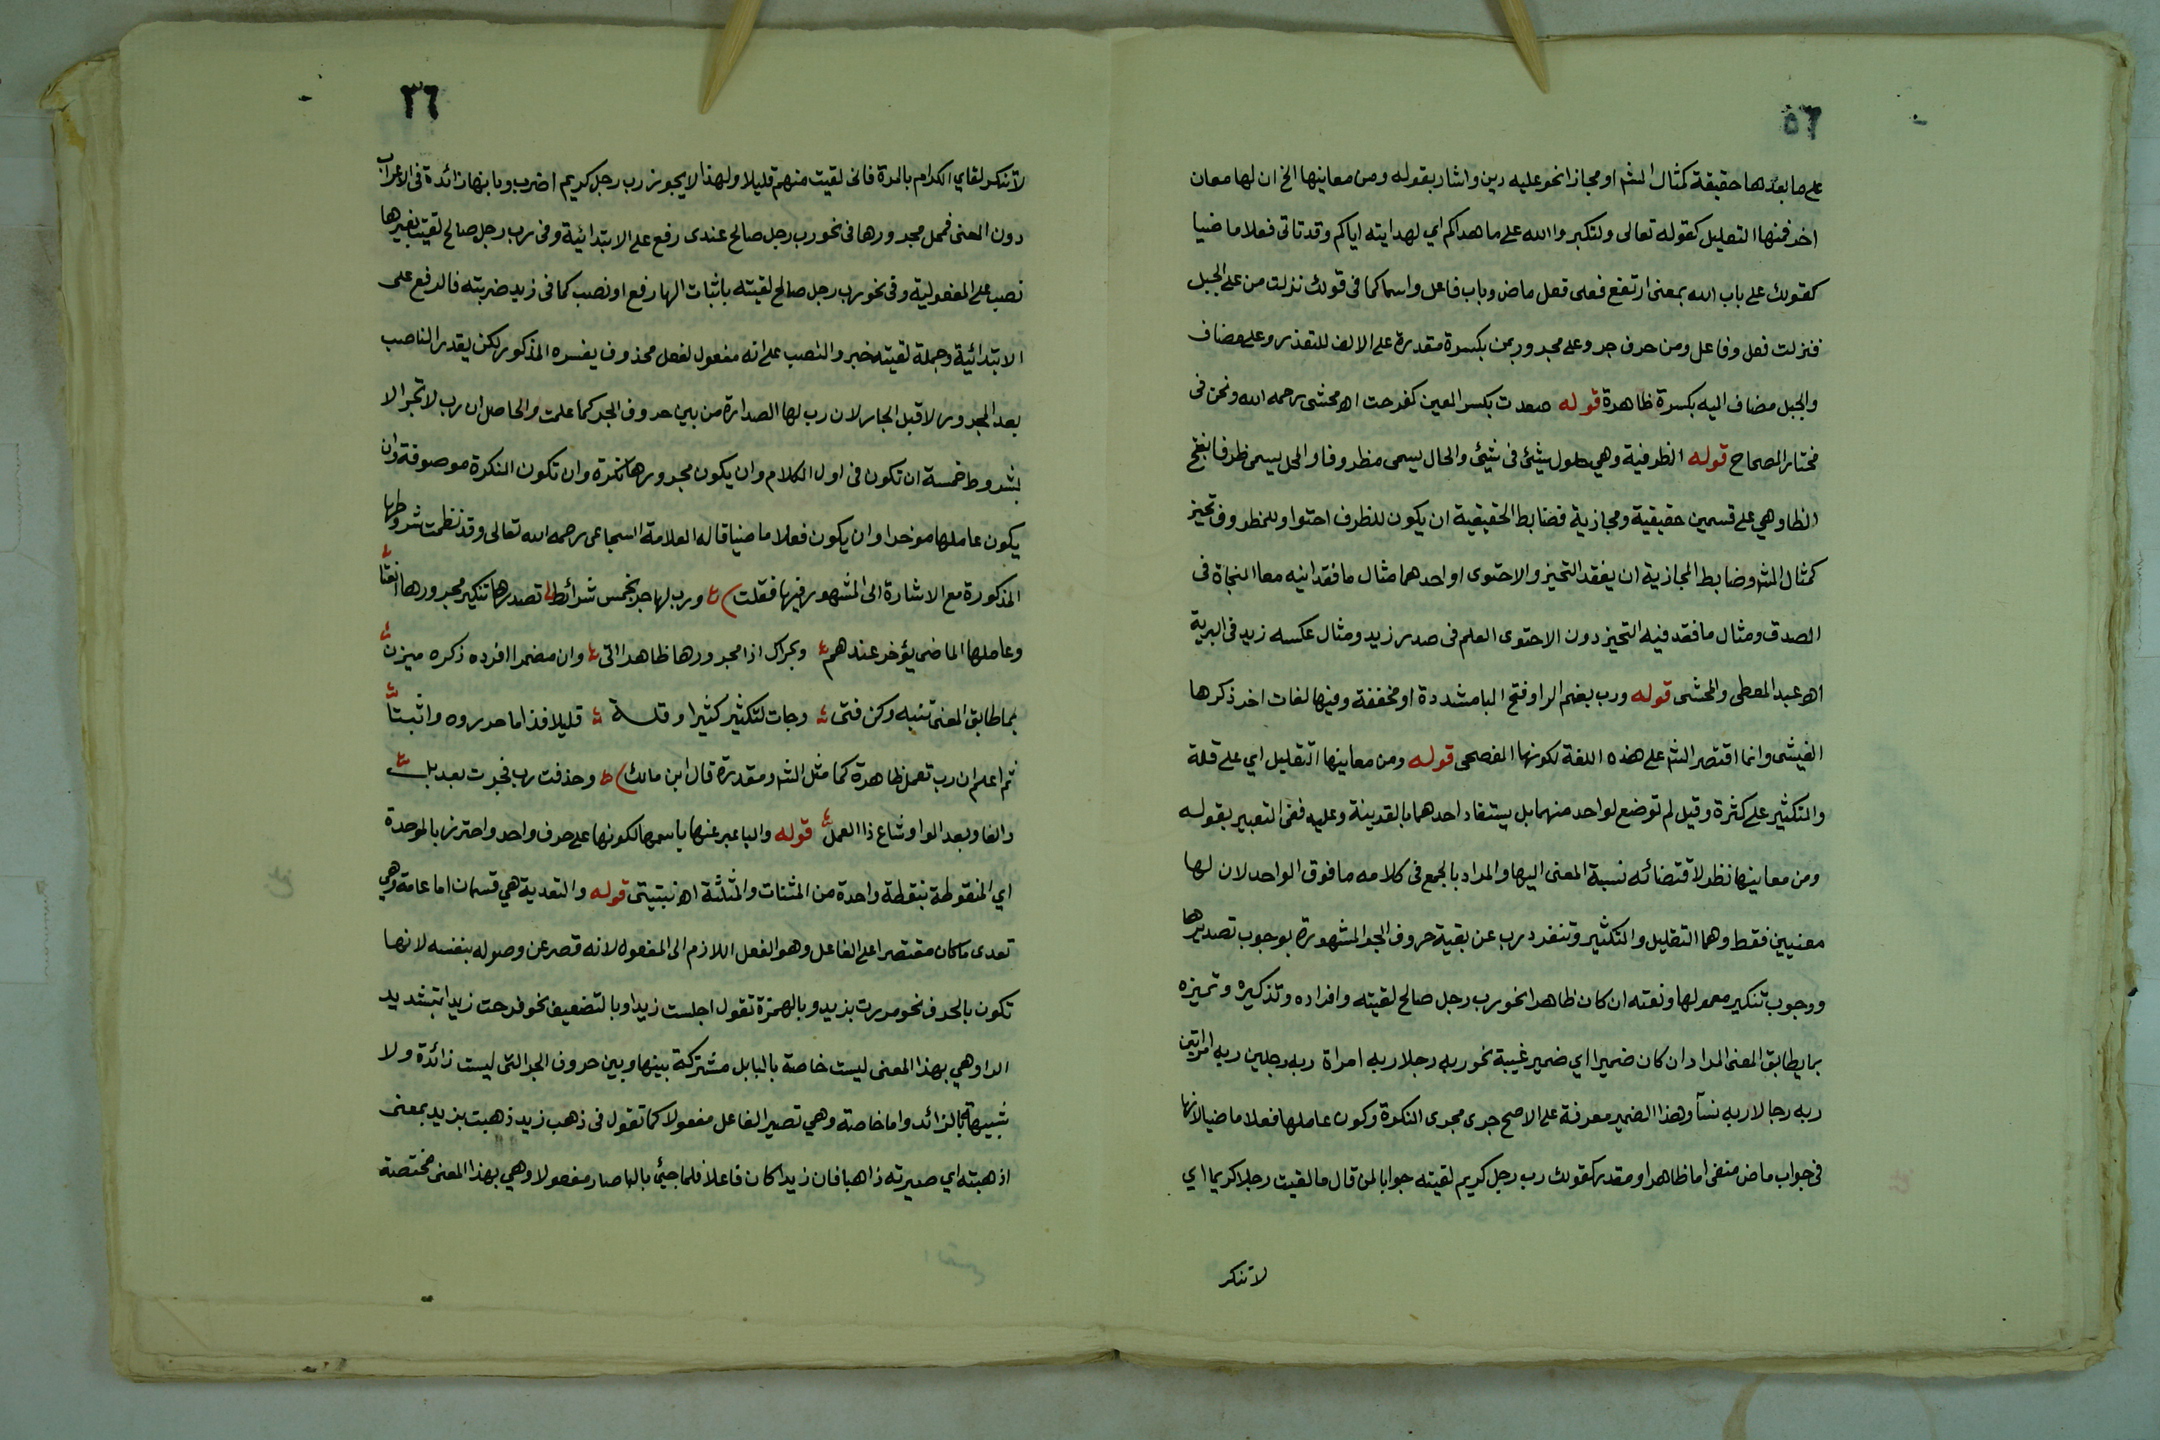 على ما بعدها حقيقة كمثال الشم او مجازا نحو عليه دين واشار بقوله ومن معانيها الخ ان لها معان
اخر فمنها التعليل كقوله تعالى ولتكبروا الله على ما هداكم اي لهدايته اياكم وقد تاتى فعلا ماضيا
كقولك على باب الله بمعنى ارتفع فعلى فعل ماض وباب فاعل واسما كما فى قولك نزلت من على الجبل
فنزلت فعل وفاعل ومن حرف جر وعلى مجرور بمن بكسرة مقدرة على الالف للتعذر وعلى مضاف
والجبل مضاف اليه بكسرة ظاهرة قوله صعدت بكسر العين كفرحت اه محشى رحمه الله ونحن فى
مختار الصحاح قوله الظرفية وهي حلول شيئ فى شيئ والحال يسمى مظروفا والمحل يسمى ظرفا بفتح
الظا وهي على قسمين حقيقية ومجازية فضابط الحقيقية ان يكون للظرف احتوا وللمظروف تحيز
كمثال الشم وضابط المجازية ان يفقد التحيز والاحتوى او احدهما مثال ما فقد ا فيه معا النجاة فى
الصدق ومثال ما فقد فيه التحيز دون الاحتوى العلم فى صدر زيد ومثال عكسه زيد فى البرية
اه عبد المعطى والمحشى قوله ورب بضم الرا وفتح البا مشددة او مخففة وفيها لغات اخر ذكرها
الفيشى وانما اقتصر الشم على هذه اللغة لكونها الفصحى قوله ومن معانيها التقليل اي على قلة
والتكثير على كثرة وقيل لم توضع لواحد منهما بل يستفاد احدهما بالقرينة وعليه ففى التعبير بقوله
ومن معانيها نظر لاقتضائه نسبة المعنى اليها والمراد بالجمع فى كلامه ما فوق الواحد لان لها
معنيين فقط وهما التقليل والتكثير وتنفرد رب عن بقية حروف الجر المشهورة بوجوب تصديرها
ووجوب تنكير معمولها ونعته ان كان ظاهرا نحو رب رجل صالح لقيته وافراده وتذكيره وتميزه
بما يطابق المعنى المراد ان كان ضميرا اي ضمير غيبة نحو ربه رجلا ربه امراة ربه رجلين ربه امراتين
ربه رجالا ربه نسآ وهذا الضمير معرفة على الاصح جرى مجرى النكرة وكون عاملها فعلا ماضيا لانها
فى جواب ماض منفى اما ظاهرا ومقدر كقولك رب رجل كريم لقيته جوابا لمن قال ما لقيت رجلا كريما اي
لا تنكر
٣٦
لا تنكر لقاي الكرام بالمرة فانى لقيت منهم قليلا ولهذا لا يجوز رب رجل كريم اضرب وبانها زائدة فى الاعراب
دون المعنى فمحل مجرورها فى نحو رب رجل صالح عندى رفع على الابتدائية وفى رب رجل صالح لقيت بغيرها
نصب على المفعولية وفى نحو رب رجل صالح لقيته باثبات الها رفع او نصب كما فى زيد ضربته فالرفع على
الابتدائية وجملة لقيته خبر والنصب على انه مفعول لفعل محذوف يفسره المذكور لكن يقدر الناصب
بعد المجرور لا قبل الجار لان رب لها الصدارة من بين حروف الجر كما علمت والحاصل ان رب لا تجر الا
بشروط خمسة ان تكون فى اول الكلام وان يكون مجرورها نكرة وان تكون النكرة موصوفة وان
يكون عاملها موخرا وان يكون فعلا ماضيا قاله العلامة السجاعى رحمه الله تعالى وقد نظمت شروطها
المذكورة مع الاشارة الى المشهور فيها فقلت ورب لها جر بخمس شرائط تصدرها تنكير مجرورها انعتا
وعاملها الماضى يؤخر عندهم وبحراك اذا مجرورها ظاهرا اتى وان مضمرا افرده ذكره ميزن
بما طابق المعنى تنبه وكن فتى وجات لتكثير كثيرا وقلة قليلا فذا ما حرروه واثبتا
ثم اعلم ان رب تعمل ظاهرة كما مثل الشم ومقدرة قال ابن مالك وحذفت رب فجرت بعد بل
والفا وبعد الواو شاع ذا العمل قوله والبا عبر عنها باسمها لكونها على حرف واحد واحترز بالموحدة
اي المنقوطة بنقطة واحدة من المثنات والمثلثة اه نبتيتى قوله والتعدية هي قسمان اما عامة وهي
تعدى ما كان مقتصرا على الفاعل وهو الفعل اللازم الى المفعول لانه قصر عن وصوله بنفسه لانها
تكون بالحرف نحو مررت بزيد وبالهمزة تقول اجلست زيدا وبالتضعيف نحو فرحت زيدا بتشديد
الرا وهي بهذا المعنى ليست خاصة بالبا بل مشتركة بينها وبين حروف الجر التى ليست زائدة ولا
شبيهة بالزائد واما خاصة وهي تصير الفاعل مفعولا كما تقول فى ذهب زيد ذهبت بزيد بمعنى
اذهبته اي صيرته ذاهبا فان زيدا كان فاعلا فلما جيئ بالبا صار مفعولا وهي بهذا المعنى مختصة